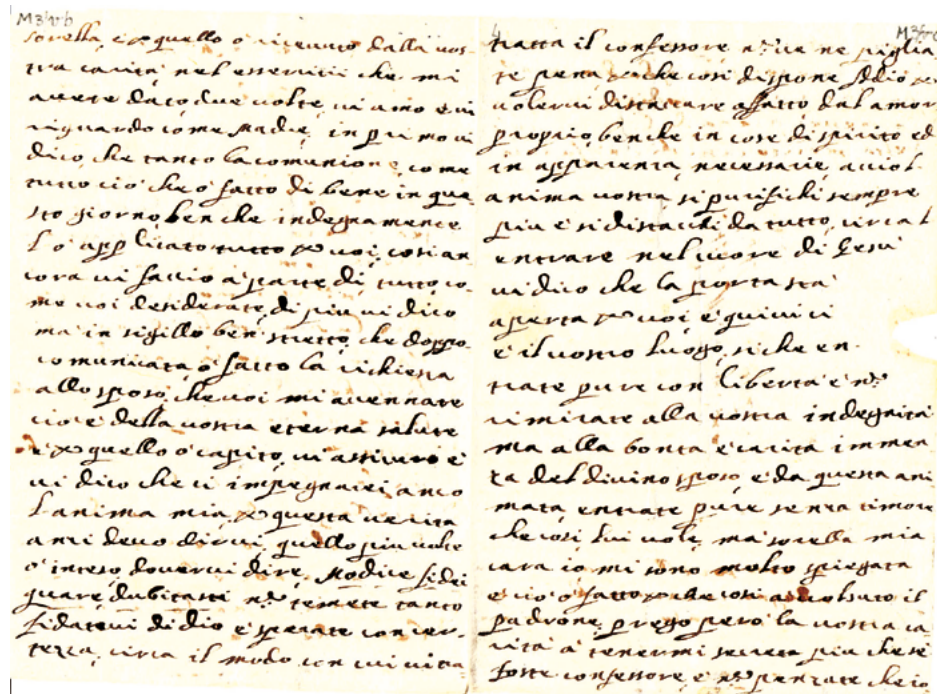 M3vb
sorella, e p quello ò riceuuto dalla uos
tra carità nel essercitii che mi
auete dato due uolte, ui amo e ui
riguardo come Madre, in primo ui
dico che tanto la comunione, come
tutto ciò che ò fatto di bene in que
sto giorno, ben che indegnamente
l ò applicato tutto p uoi, cosi an
cora ui faccio à parte di tutto, co
me uoi desiderate, di piu ui dico
ma in sigillo ben stretto, che doppo
comunicata ò fatto la richiesta
allo sposo, che uoi mi
cio è della uostra eterna salute
e p quello ò capito, ui assicuro e
ui dico che ci impegnarei anco
l anima mia p questa uerita
anzi deuo dirui, quello piu uolte
ò inteso douerui dire, Modice fidei
quare dubitasti nō temete tanto
fidateui di dio e sperate con cer
tezza, circa il modo con cui ui tra
4
tratta il confessore nō ue ne piglia
te pena p che cosi dispone Iddio p
uolerui distaccare affatto dal amor
proprio, benche in cose di spirito ed
in apparenza, necessarie, acciò l
anima uostra si purifichi sempre
piu e si distacchi da tutto, circa l
entrare nel cuore di Gesù
ui dico che la porta stà
aperta p uoi e quiui ci
è il uostro luogo, siche en
trate pure con libertà e nō
rimirate alla uostra indegnità
ma alla bontà e carità immen
za del diuino sposo e da questa ani
mata, entrate pure senza timore
che cosi lui uole, ma sorella mia
cara io mi sono molto spiegata
e ciò ò fatto p che cosi à uolsuto il
padrone, prego però la uostra ca
rità à tenermi secreta piu che se
foste confessore e nō penzate che io